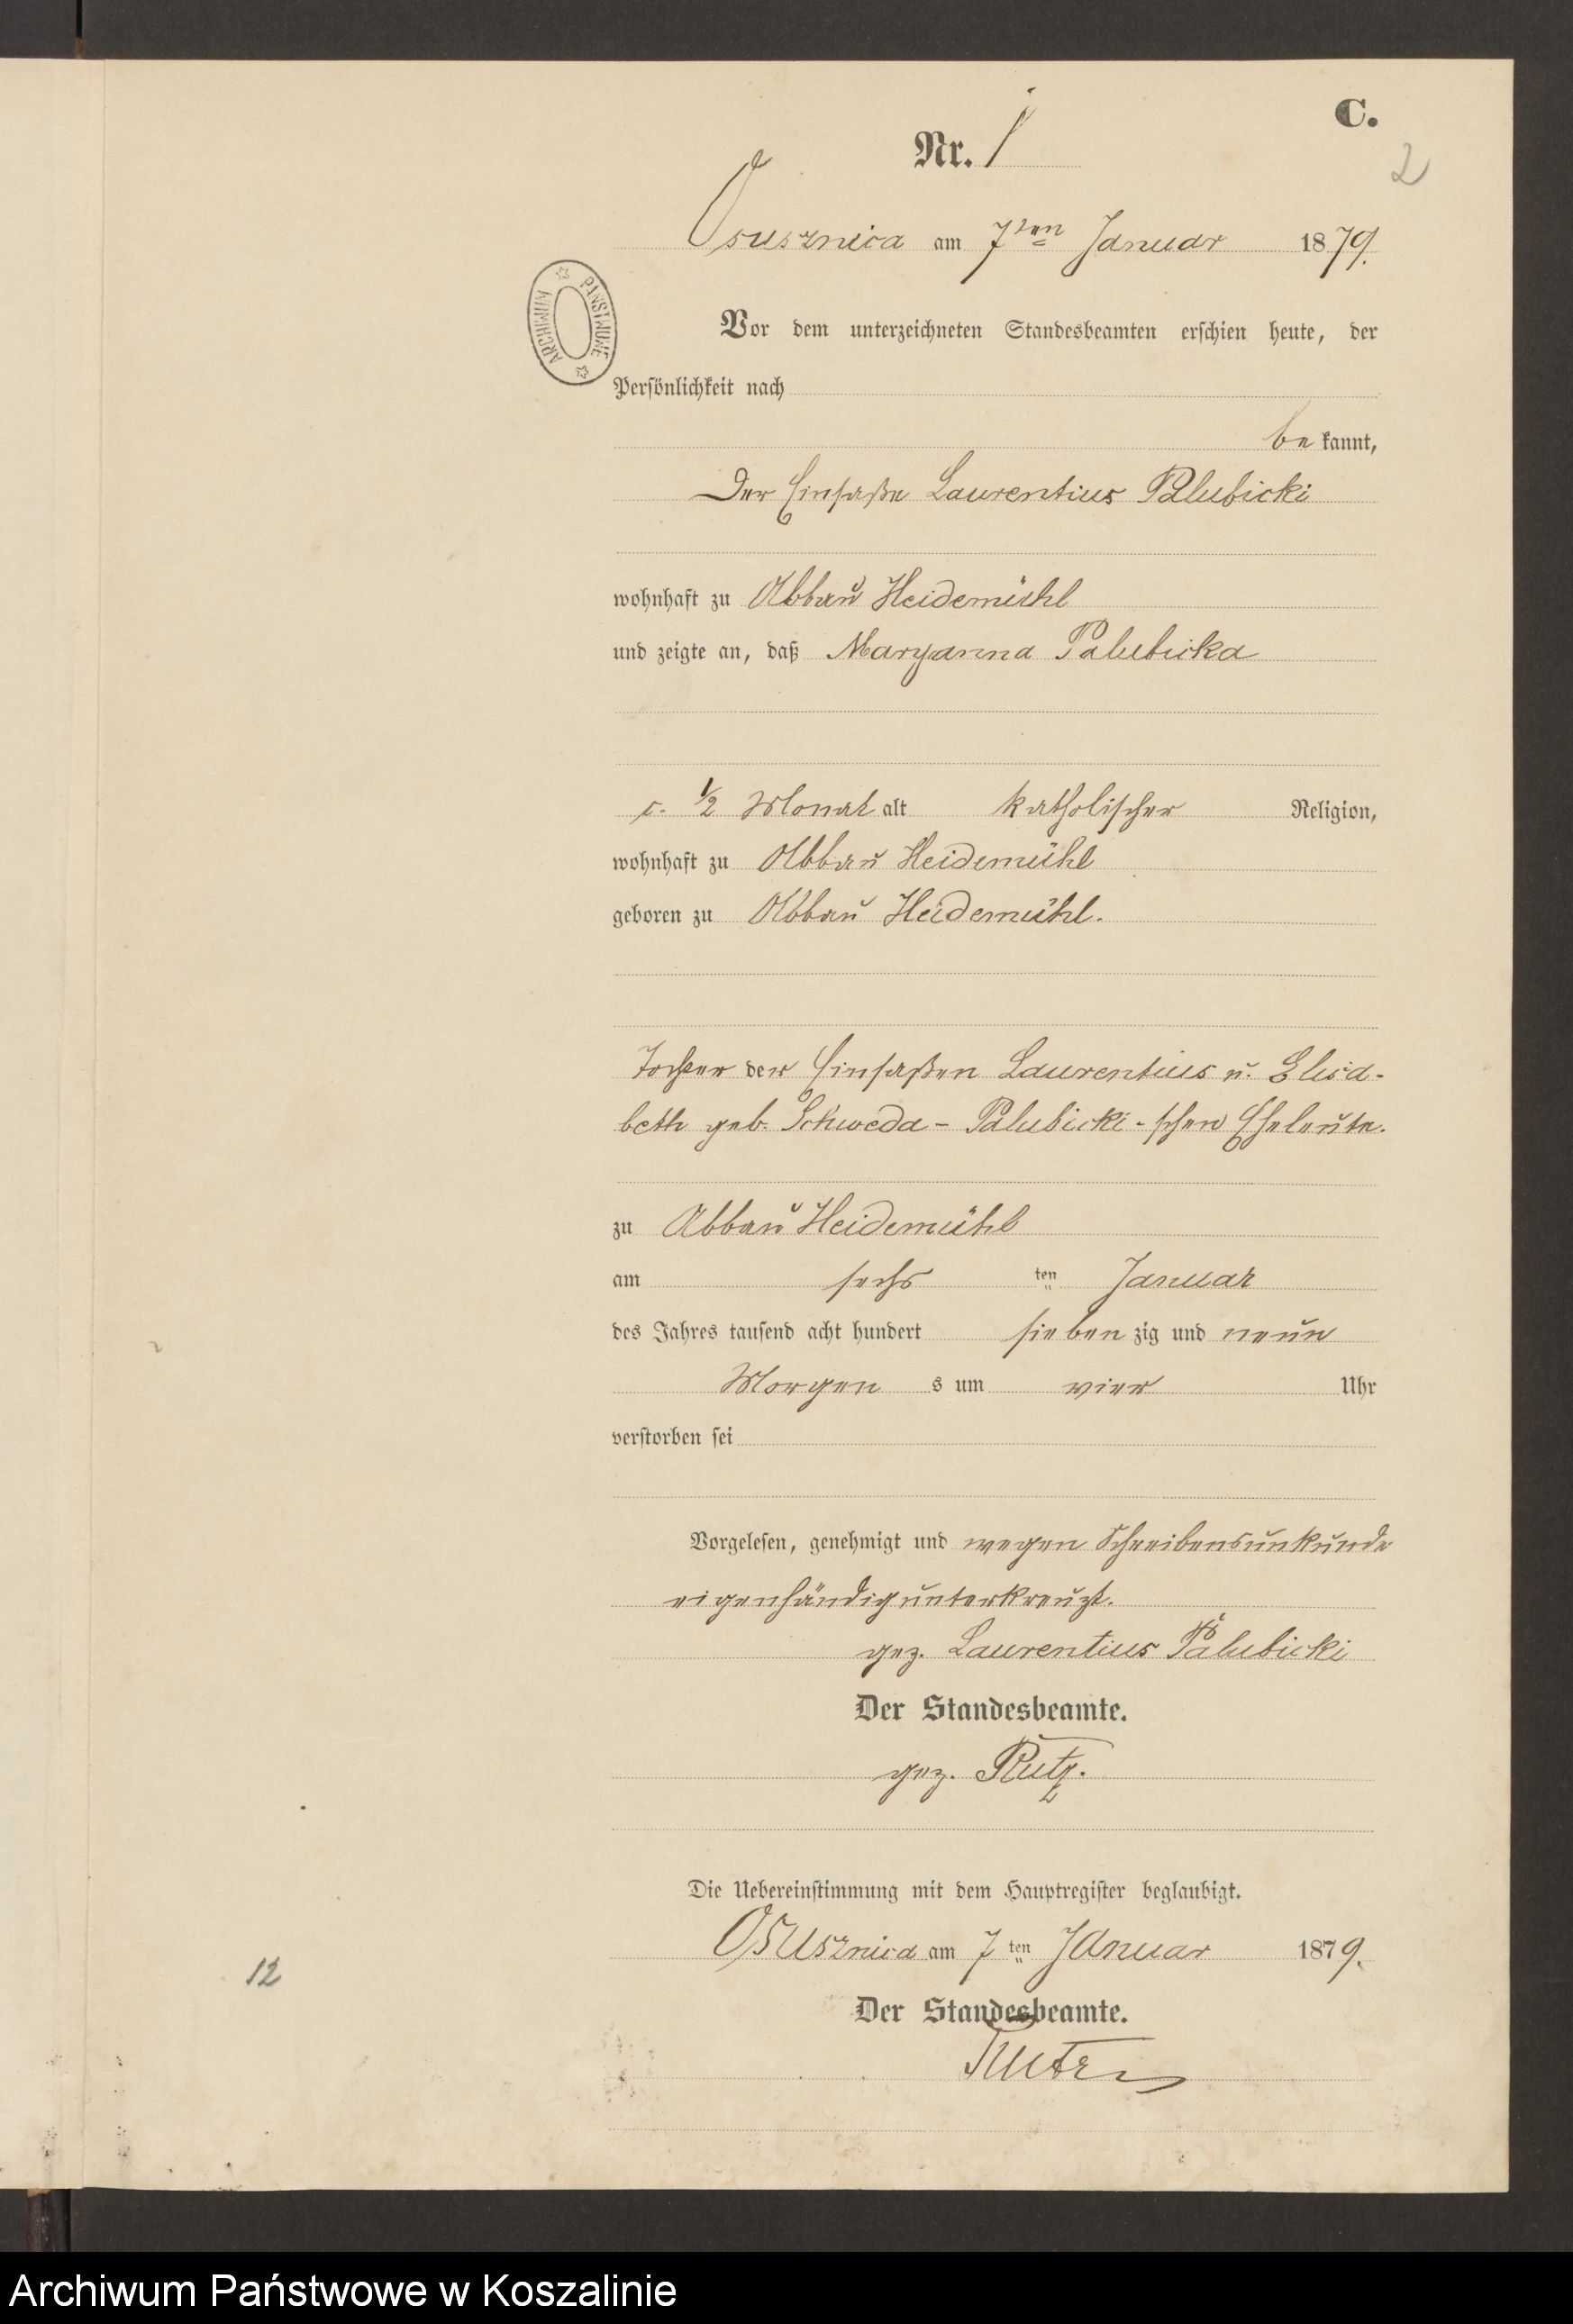 C.
Nr. 1
2
Osusznica am 7ten Januar 1879.
PAŃSTWOWE ARCHIWUM
Vor dem unterzeichneten Standesbeamten erschien heute, der
Persönlichkeit nach
be kannt,
Der Einsaße Laurentius Palubicki
wohnhaft zu Abbau Heidemühl
und zeigte an, daß Maryanna Palubicka
c. 1/2 Monat alt katholischer Religion,
wohnhaft zu Abbau Heidemühl
geboren zu Abbau Heidemühl.
Tochter der Einsaßen Laurentius u. Elisa-
beth geb. Schweda - Palubicki - schen Eheleute.
zu Abbau Heidemühl
am sechs ten Januar
des Jahres tausend acht hundert sieben zig und neun
Morgen s um vier Uhr
verstorben sei
Vorgelesen, genehmigt und wegen Schreibensunkunde
eigenhändig unterkreuzt.
gez. Laurentius Palubicki
Der Standesbeamte.
gez. Rutz.
Die Uebereinstimmung mit dem Hauptregister beglaubigt.
Osusznica am 7 ten Januar 1879.
12
Der Standesbeamte.
Rutz
Archiwum Państwowe w Koszalinie